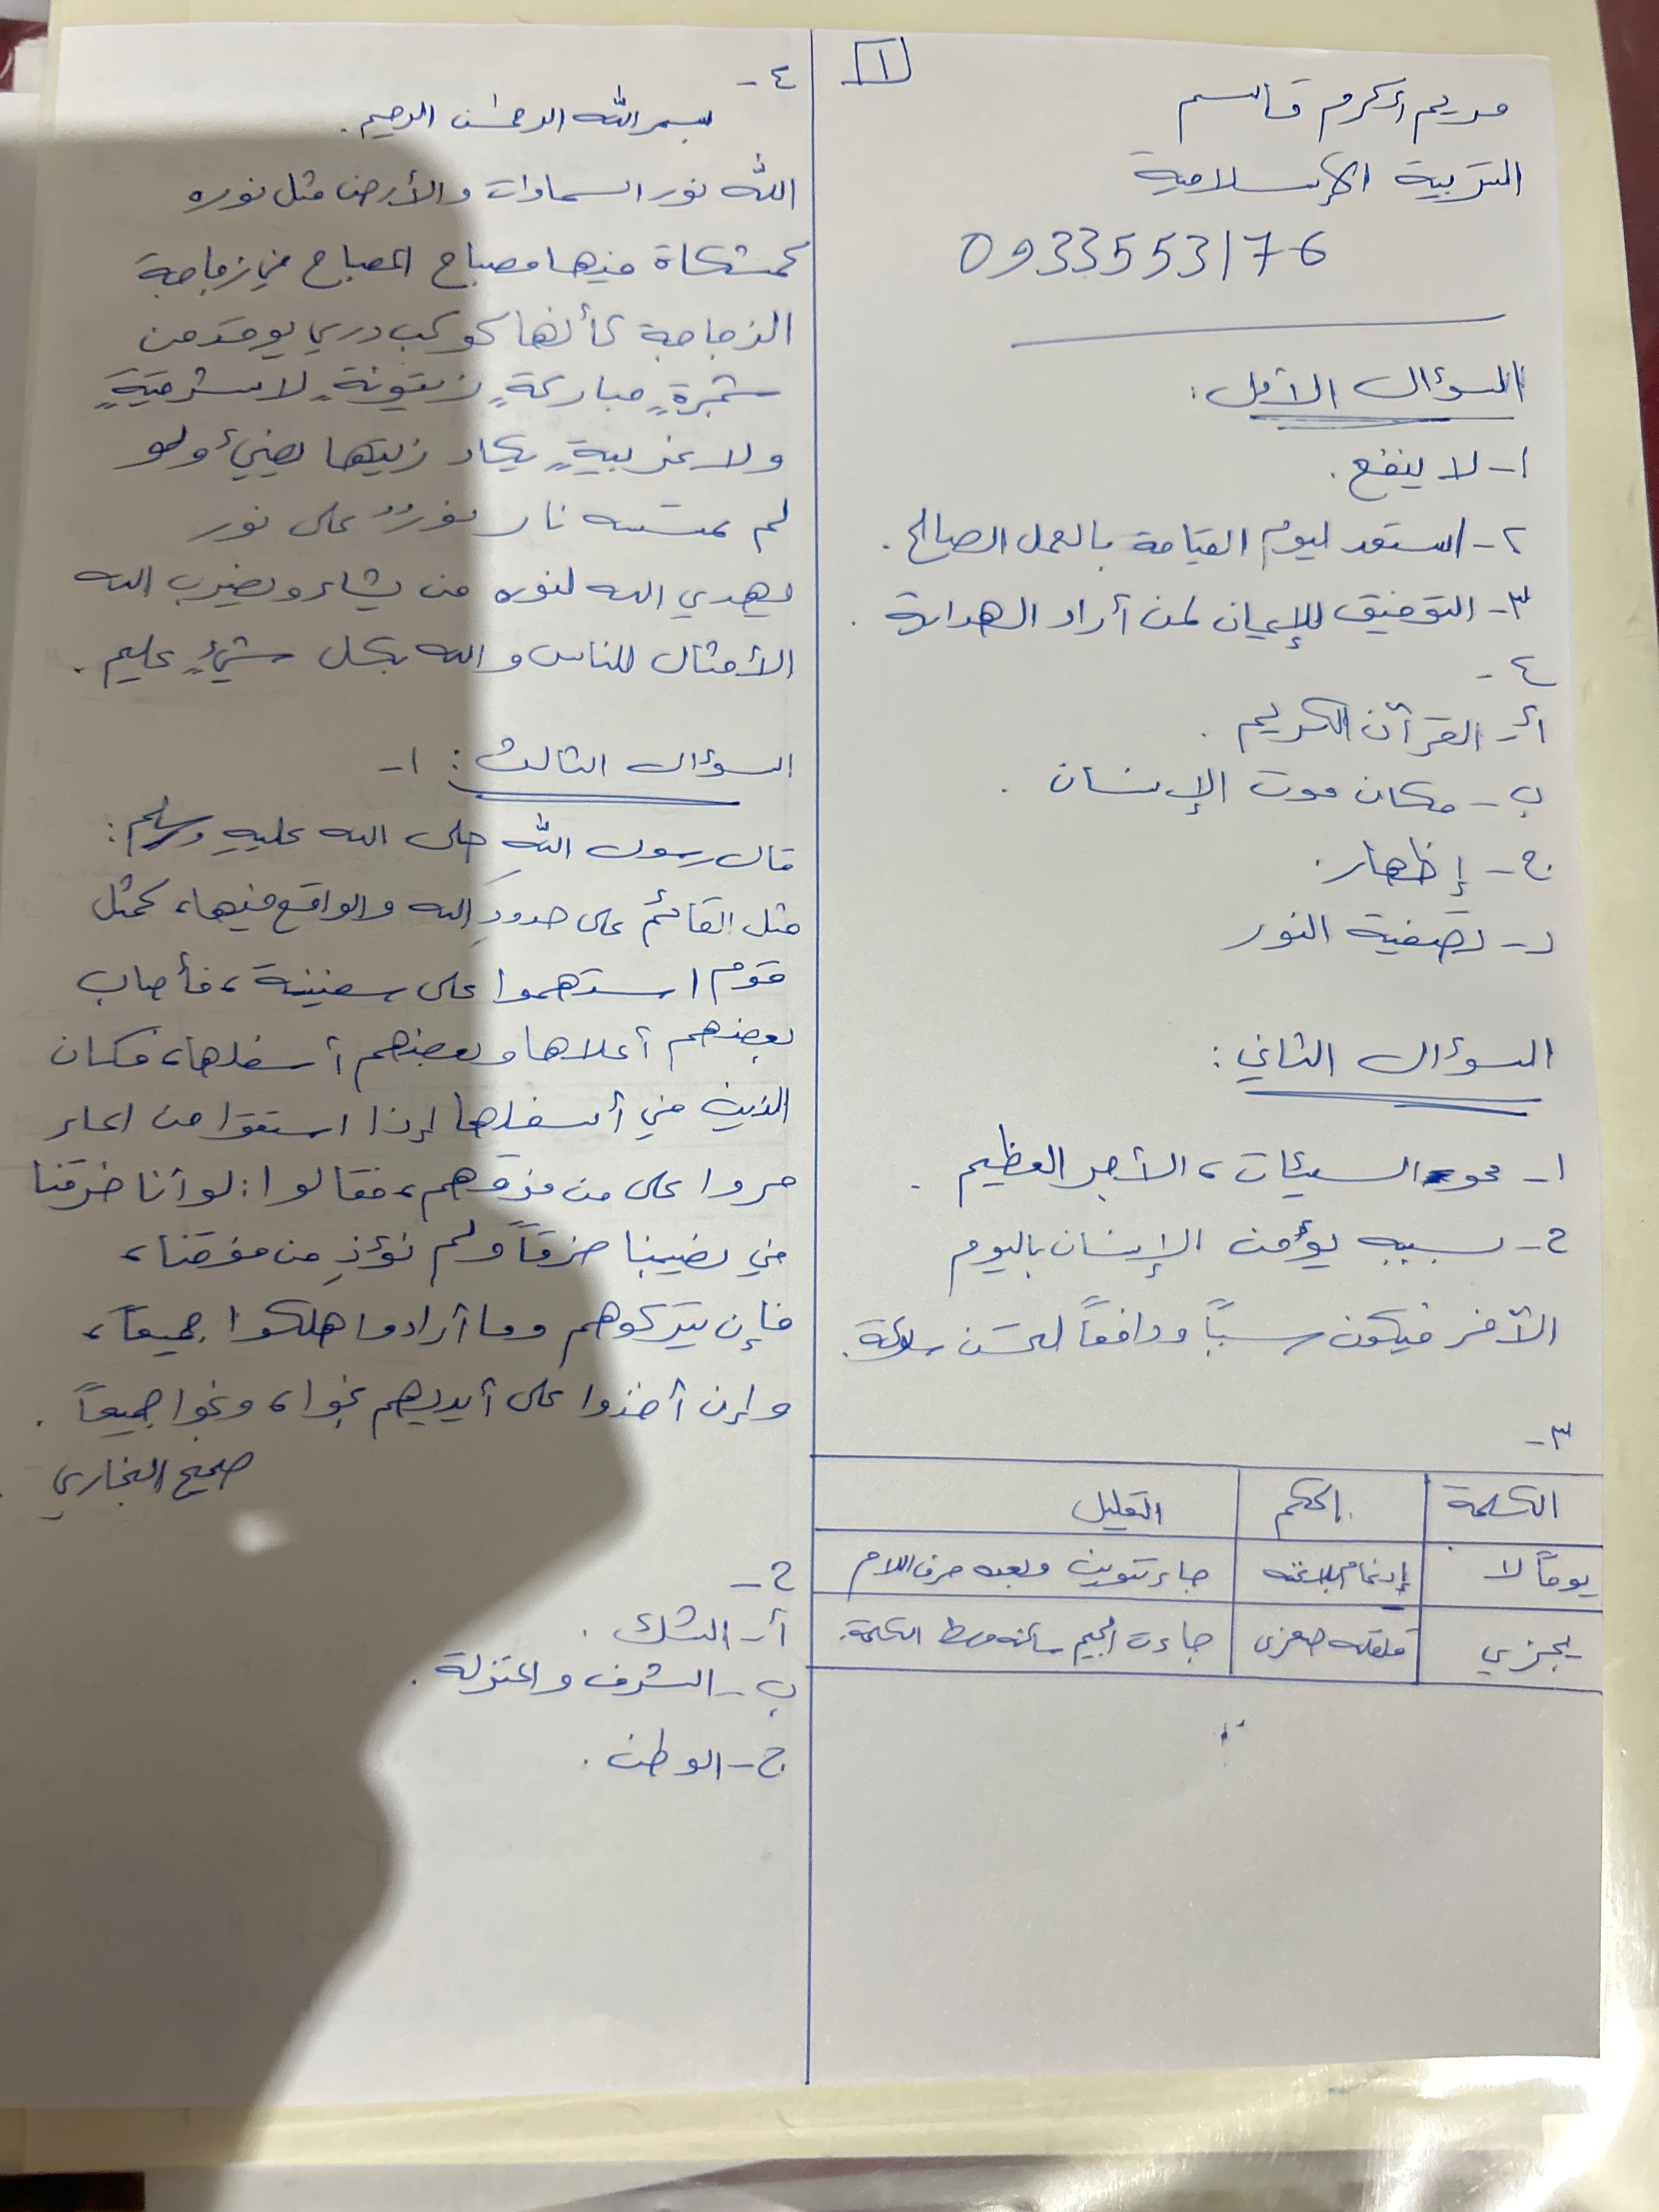 ١
مريم أكرم قاسم
التربية الإسلامية
0933553176
السؤال الأول:
١- لا ينفع.
٢- استعد ليوم القيامة بالعمل الصالح.
٣- التوفيق للإيمان لمن أراد الهداية.
٤-
أ- القرآن الكريم.
ب- مكان موت الإنسان.
ج- إظهار.
د- تصفية النور
السؤال الثاني:
١- محو السيئات، الأجر العظيم.
٢- بسببه يؤمن الإنسان باليوم
الآخر فيكون سبباً ودافعاً لحسن سلوكه.
٣-
الكلمة الحكم التعليل
يوماً لا إدغام بلا غنه جاء تنوين وبعده حرف اللام
يجزي قلقله صغرى جاءت الجيم ساكنه وسط الكلمة.
٤-
بسم الله الرحمن الرحيم.
الله نور السماوات والأرض مثل نوره
كمشكاة فيها مصباح المصباح في زجاجة
الزجاجة كأنها كوكب دري يوقد من
شجرةٍ مباركةٍ زيتونةٍ لا شرقيةٍ
ولا غربيةٍ يكاد زيتها يضيءُ ولو
لم تمسسه نار نورٌ على نور
يهدي الله لنوره من يشاء ويضرب الله
الأمثال للناس والله بكل شيءٍ عليم.
السؤال الثالث: ١-
قال رسول الله صلى الله عليه وسلم:
مثل القائم على حدودِ الله والواقع فيها، كمثل
قوم استهموا على سفينة، فأصاب
بعضهم أعلاها وبعضهم أسفلها، فكان
الذين في أسفلها إذا استقوا من الماء
مروا على من فوقهم، فقالوا: لو أنا خرقنا
في نصيبنا خرقاً ولم نؤذِ من فوقنا،
فإن يتركوهم وما أرادوا هلكوا جميعاً،
وإن أخذوا على أيديهم نجوا، ونجوا جميعاً.
صحيح البخاري
٢-
أ- الشك.
ب- الشرف والمنزلة.
ج- الوطن.